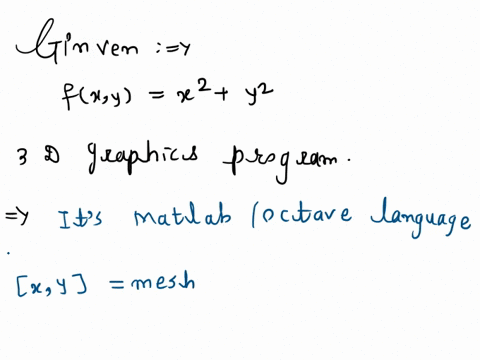 Ginven :=>
f(x,y) = x² + y²
3 D graphics program.
=> It's matlab (octave language
.
[x,y] = mesh